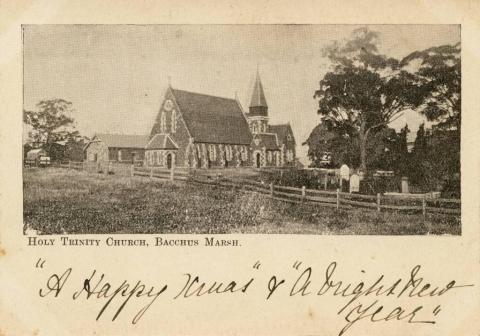 Holy Trinity Church, Bacchus Marsh.
"A Happy Xmas" & "A bright New
Year"